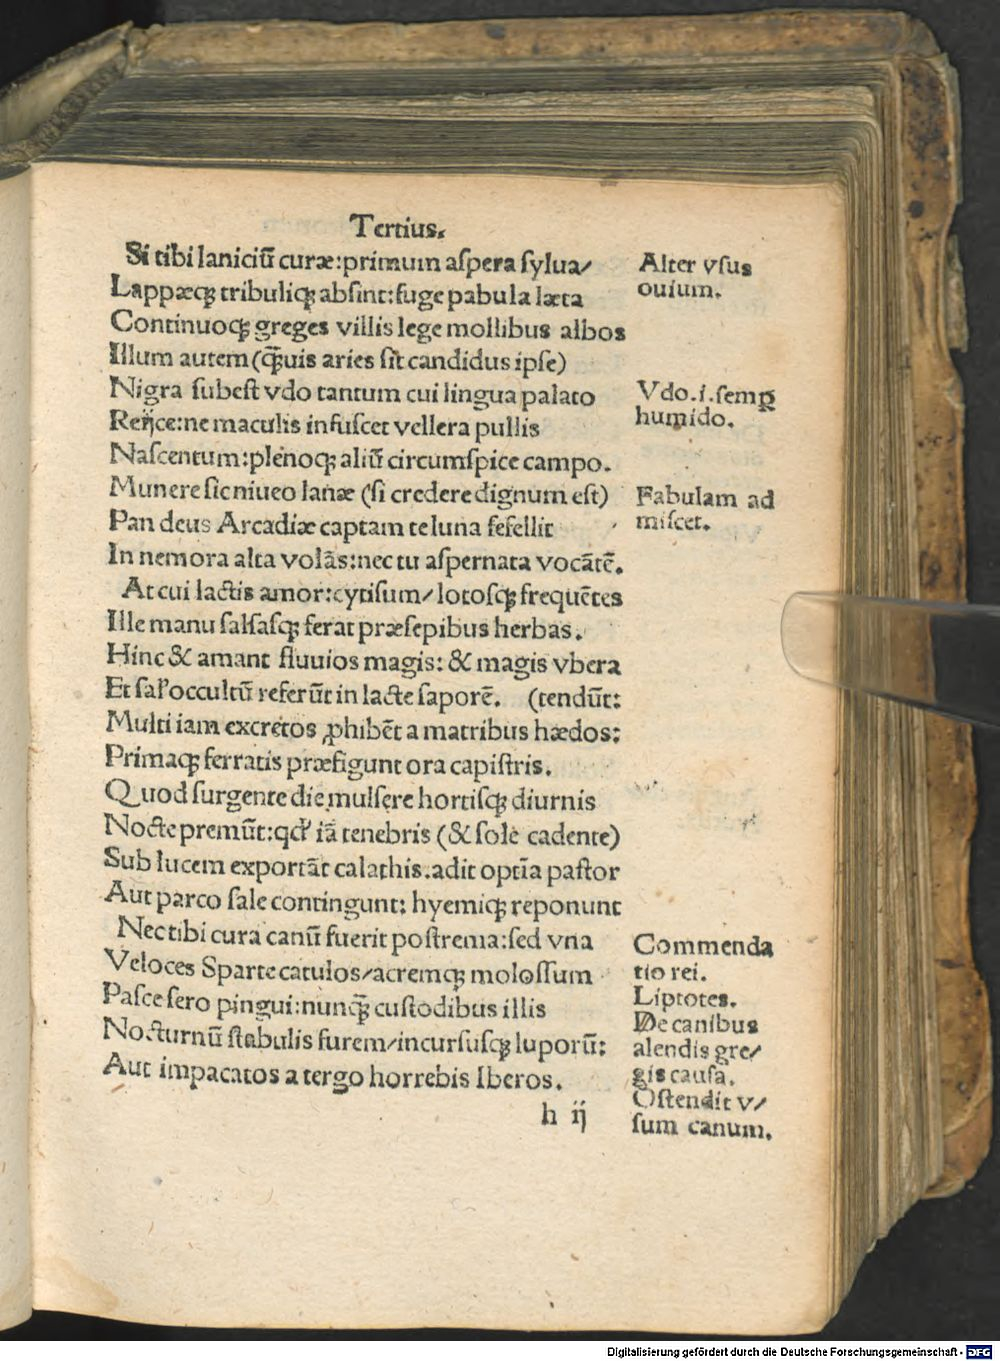 Tertius.
Si tibi laniciũ curæ:primum aſpera ſylua/
Lappæqꝫ tribuliqꝫ abſint:fuge pabula læta
Continuoqꝫ greges villis lege mollibus albos
Illum autem (q̃uis aries ſit candidus ipſe)
Nigra ſubeſt vdo tantum cui lingua palato
Reijce:ne maculis infuſcet vellera pullis
Naſcentum:plenoqꝫ aliũ circumſpice campo.
Munere ſic niueo lanæ (ſi credere dignum eſt)
Pan deus Arcadiæ captam te luna fefellit
In nemora alta volãs:nec tu aſpernata vocãtẽ.
At cui lactis amor:cytiſum/lotoſqꝫ frequẽtes
Ille manu ſalſaſqꝫ ferat præſepibus herbas.
Hinc & amant fluuios magis: & magis vbera
Et ſal'occultũ referũt in lacte ſaporẽ. (tendũt:
Multi iam excretos ꝓhibẽt a matribus hædos:
Primaqꝫ ferratis præfigunt ora capiſtris.
Quod ſurgente die mulſere hortiſqꝫ diurnis
Nocte premũt:qd' iã tenebris (& ſole cadente)
Sub lucem exportãt calathis.adit optĩa paſtor
Aut parco ſale contingunt: hyemiqꝫ reponunt
Nec tibi cura canũ fuerit poſtrema:ſed vna
Veloces Sparte catulos/acremqꝫ moloſſum
Paſce ſero pingui:nunq̃ cuſtodibus illis
Nocturnũ ſtabulis furem/incurſuſqꝫ luporũ:
Aut impacatos a tergo horrebis Iberos.
h ij
Alter vſus
ouium.
Vdo.i.ſemꝑ
humido.
Fabulam ad
miſcet.
Commenda
tio rei.
Liptotes.
De canibus
alendis gre/
gis cauſa.
Oſtendit v/
ſum canum.
Digitalisierung gefördert durch die Deutsche Forschungsgemeinschaft - DFG